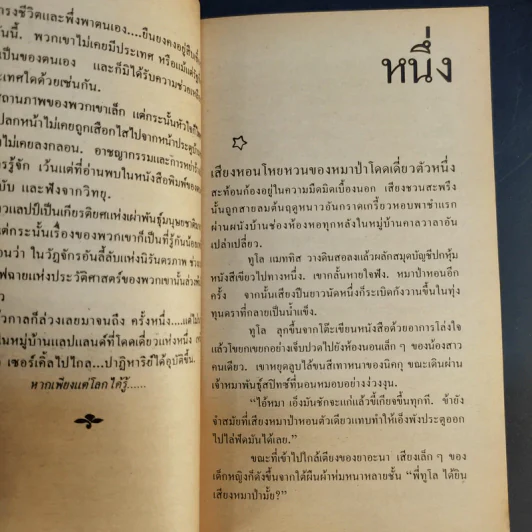 ำรงชีวิตและพึ่งพาตนเอง....ยืนยงคงอยู่
วันนี้. พวกเขาไม่เคยมีประเทศ
เป็นของตนเอง และก็มิได้รับความช่วย
ประเทศใดด้วยเช่นกัน.
สถานภาพของพวกเขาเล็ก แต่กระนั้นหัวใจ
แปลกหน้าไม่เคยถูกเสือกไสไปจากหน้าประตู
ไม่เคยลงกลอน. อาชญากรรมและการหย่าร้าง
การรู้จัก เว้นแต่ที่อ่านพบในหนังสือพิมพ์ของ
ฉบับ และฟังจากวิทยุ.
าวแลปป์เป็นเกียรติยศแห่งเผ่าพันธุ์มนุษยชาติ
แต่กระนั้นเรื่องของพวกเขาก็เป็นที่รู้กันน้อย
อนว่า ในวัฏจักรอันลี้ลับแห่งนิรันตรภาพ ช่วง
ฟฉายแห่งประวัติศาสตร์ของพวกเขานั้นล่วง
ว
ว่ากาลก็ล่วงเลยมาจนถึง ครั้งหนึ่ง....แต่ไม่
ในหมู่บ้านแลปแลนด์ที่โดดเดี่ยวแห่งหนึ่ง
เซอร์เคิ้ลไปไกล...ปาฏิหาริย์ได้อุบัติขึ้น.
หากเพียงแต่โลกได้รู้......
หนึ่ง
เสียงหอนโหยหวนของหมาป่าโดดเดี่ยวตัวหนึ่ง
สะท้อนก้องอยู่ในความมืดมิดเบื้องนอก เสียงชวนสะพรึง
นั้นถูกสายลมต้นฤดูหนาวอันกราดเกรี้ยวหอบพาซ่าแรก
ผ่านผนังบ้านช่องห้องหอทุกหลังในหมู่บ้านคาลวาลาอัน
เปล่าเปลี่ยว.
ทูโล แมททิส วางดินสอลงแล้วผลักสมุดบัญชีปกหุ้ม
หนังสีเขียวไปทางหนึ่ง. เขากลั้นหายใจฟัง. หมาป่าหอนอีก
ครั้ง จากนั้นเสียงปืนยาวนัดหนึ่งก็ระเบิดกังวานขึ้นในทุ่ง
ทุนดราที่กลายเป็นน้ำแข็ง.
ทูโล ลุกขึ้นจากโต๊ะเขียนหนังสือด้วยอาการโล่งใจ
แล้วโขยกเขยกอย่างเจ็บปวดไปยังห้องนอนเล็ก ๆ ของน้องสาว
คนเดียว. เขาหยุดลูบไล้ขนสีเทาหนาของนิคกุ ขณะเดินผ่าน
เจ้าหมาพันธุ์สปิทซ์ที่นอนหมอบอย่างง่วงงุน.
“ไอ้หมา เอ็งมันชักจะแก่แล้วขี้เกียจขึ้นทุกที. ข้ายัง
จำสมัยที่เสียงหมาป่าหอนตัวเดียวแทบทำให้เอ็งพังประตูออก
ไปไล่ฟัดมันได้เลย.”
ขณะที่เข้าไปใกล้เตียงของยาอะนา เสียงเล็ก ๆ ของ
เด็กหญิงก็ดังขึ้นจากใต้ผืนผ้าห่มหนาหลายชั้น “พี่ทูโล ได้ยิน
เสียงหมาป่ามั้ย?”